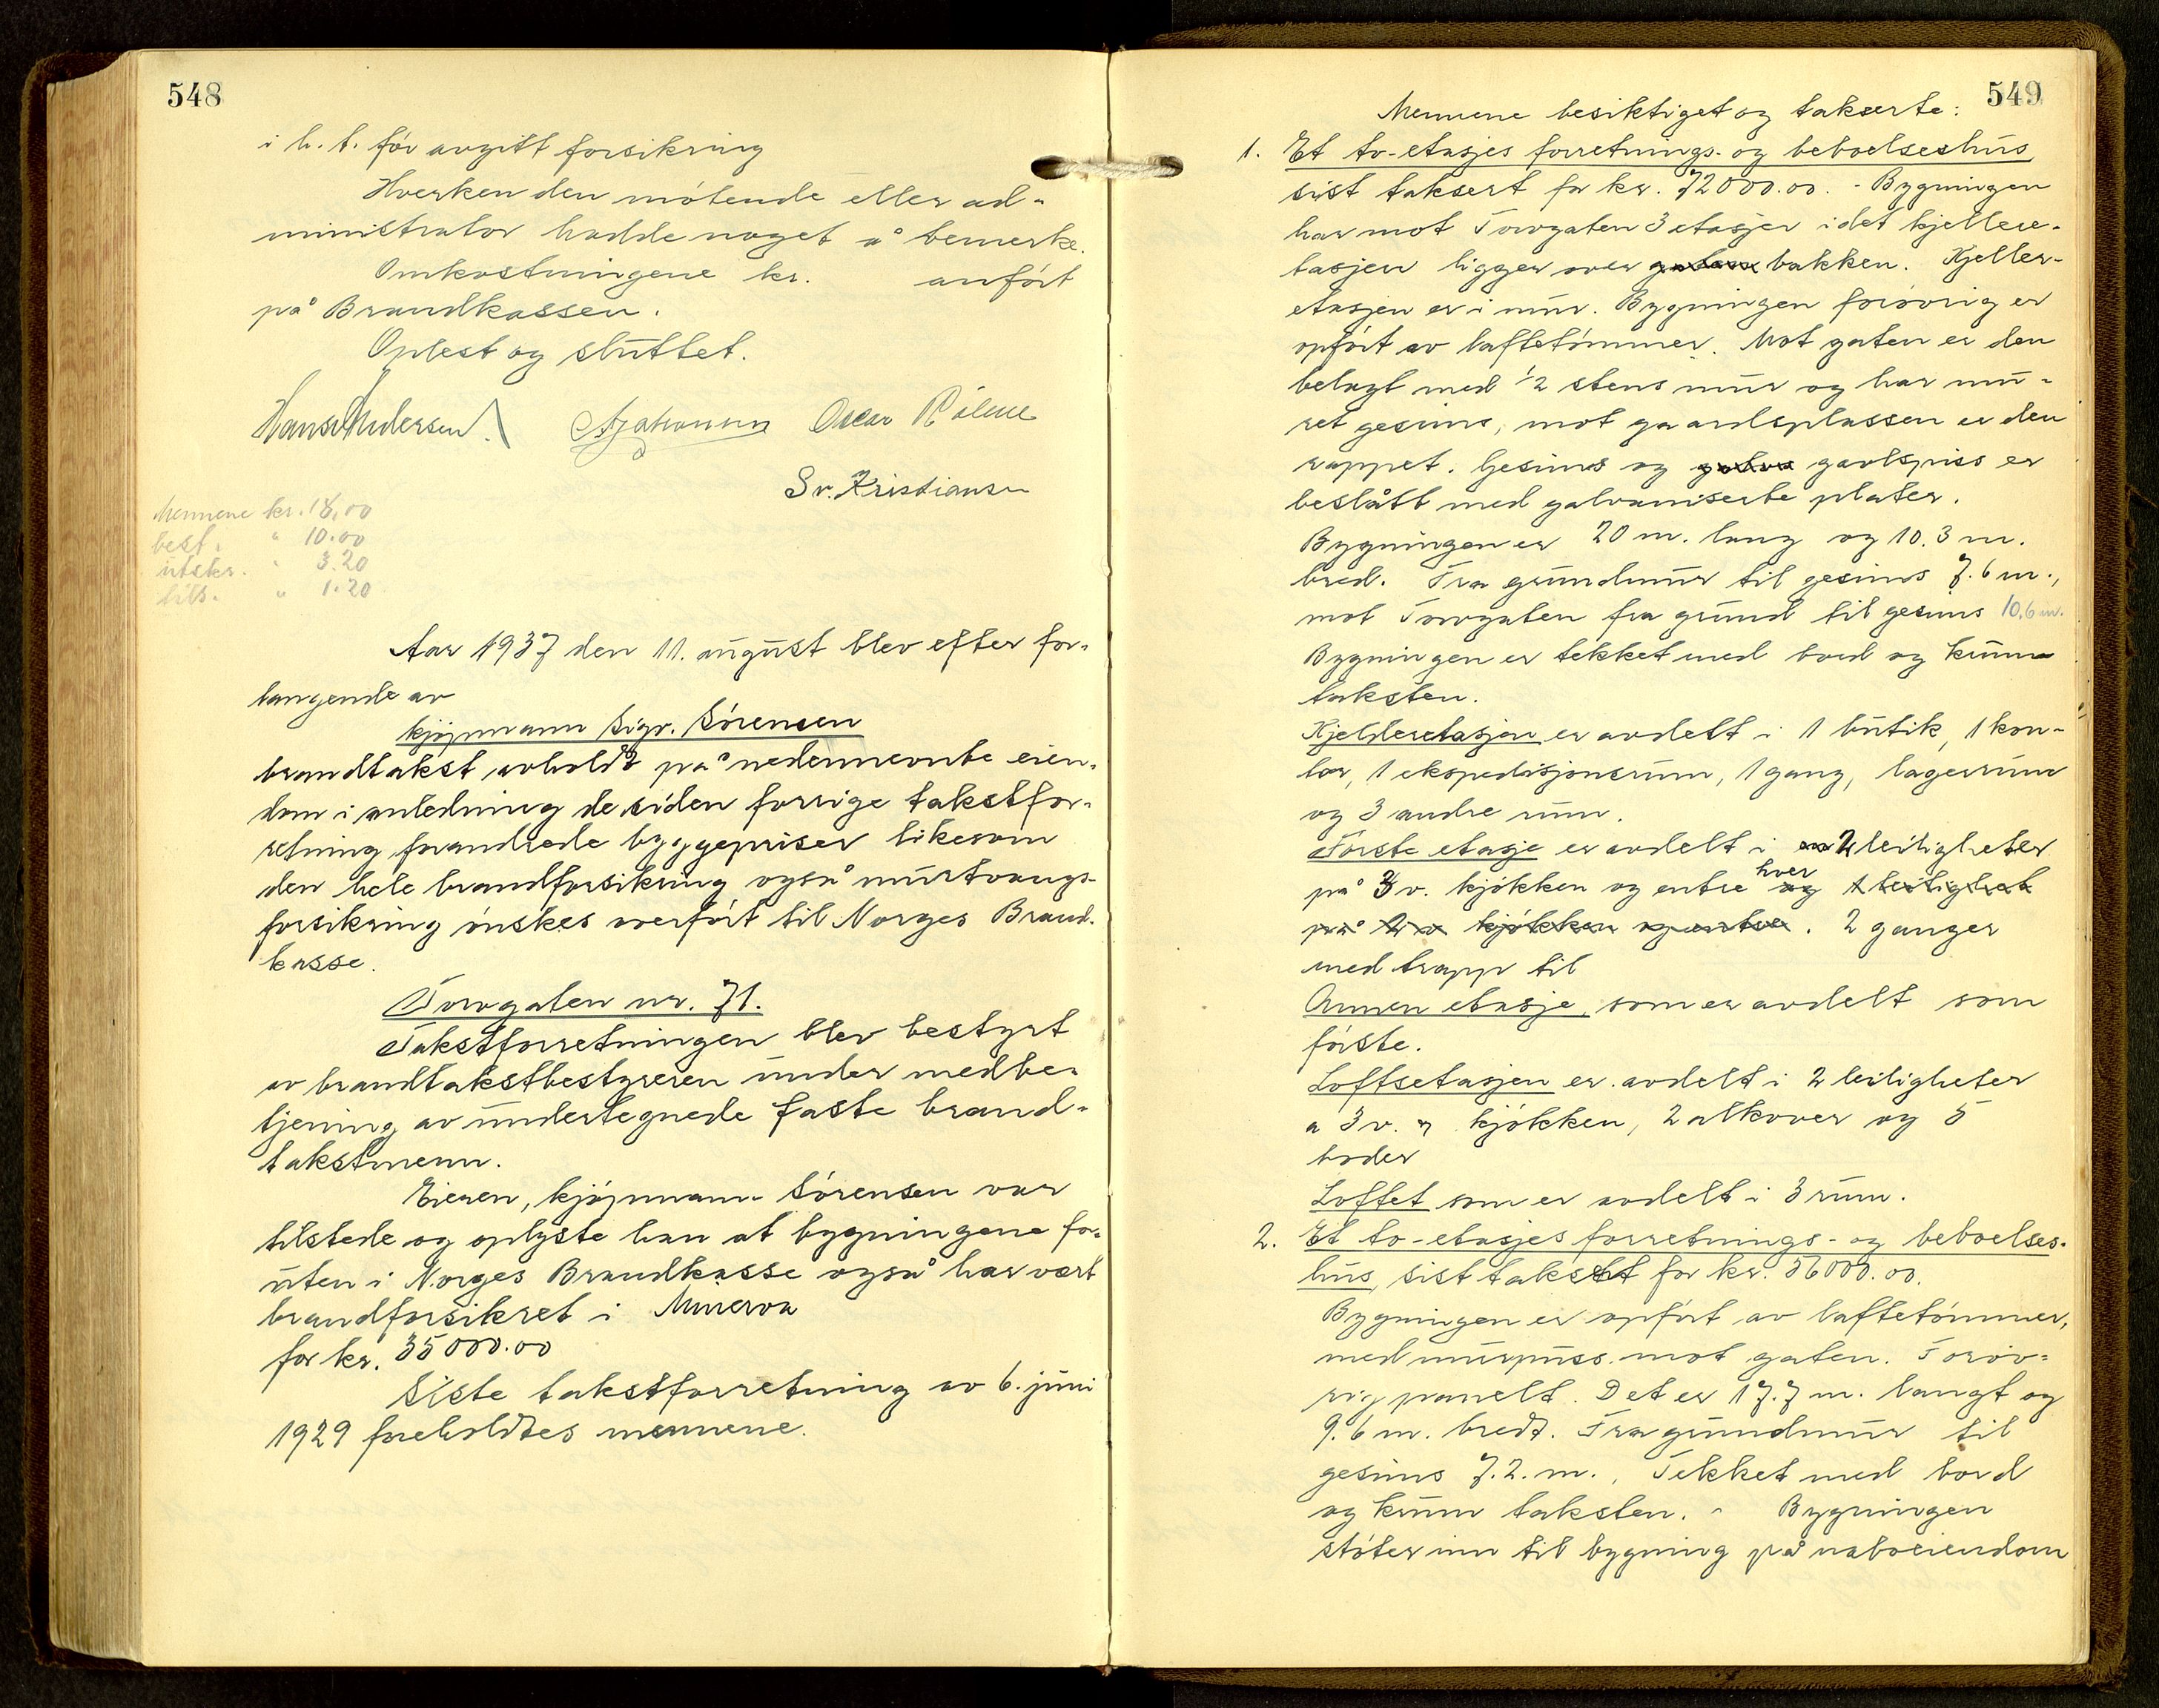 548
i h. t. før avgitt forsikring
Hverken den møtende eller ad-
ministrator hadde noget å bemerke.
Omkostningene kr. anført
på Brandkassen.
Oplest og sluttet.
Hans Andersen. Oscar Rålme
Sv. Kristiansen
Mennene kr. 18,00
best. " 10.00
utskr. " 3.20
" 1.20
Aar 1937 den 11. august blev efter for-
langende av
kjøpmann Sigv. Sørensen
brandtakst avholdt på nedennevnte eien-
dom i anledning de siden forrige takstfor-
retning forandrede byggepriser likesom
den hele brandforsikring også murtvangs-
forsikring ønskes overført til Norges Brand-
kasse.
Torvgaten nr. 71.
Takstforretningen blev bestyrt
av brandtakstbestyreren under medbe-
tjening av undertegnede faste brand-
takstmenn.
Eieren, kjøpmann Sørensen var
tilstede og oplyste han at bygningene for-
uten i Norges Brandkasse også har vært
brandforsikret i Minerva
for kr. 35000.00
Siste takstforretning av 6. juni
1929 foreholdtes mennene.
549
Mennene besiktiget og takserte:
1. Et to-etasjes forretnings- og beboelseshus
sist taksert for kr. 72000.00. - Bygningen
har mot Torvgaten 3 etasjer idet kjellere-
tasjen ligger over bakken. Kjeller-
etasjen er i mur. Bygningen forøvrig er
opført av laftetømmer. Mot gaten er den
belagt med 1/2 stens mur og har mu-
ret gesims, mot gaardsplassen er den
rappet. Gesims og gavlspiss er
beslått med galvaniserte plater.
Bygningen er 20 m. lang og 10.3 m.
bred. Fra grundmur til gesims 7.6 m.,
mot Torvgaten fra grund til gesims 10,6 m.
Bygningen er tekket med bord og krum
taksten.
Kjelderetasjen er avdelt i 1 butik, 1 kon-
tor, 1 ekspedisjonsrum, 1 gang, lagerrum
og 3 andre rum.
Første etasje er avdelt i 2 leiligheter
på 3 v. kjøkken og entre hver og 1 leilighet
på 2 v. kjøkken og entre. 2 ganger
med trapp til
Annen etasje, som er avdelt som
første.
Loftsetasjen er avdelt i 2 leiligheter
a 3 v. og kjøkken, 2 alkover og 5
boder
Loftet som er avdelt i 3 rum.
2. Et to-etasjes forretnings- og beboelses-
hus, sist takstet for kr. 56000.00.
Bygningen er opført av laftetømmer,
med murpuss mot gaten. Forøv-
rig panelt. Det er 17.7 m. langt og
9.6 m. bredt. Fra grundmur til
gesims 7.2. m., Tekket med bord
og krum taksten. - Bygningen
støter inn til bygning på naboeiendom